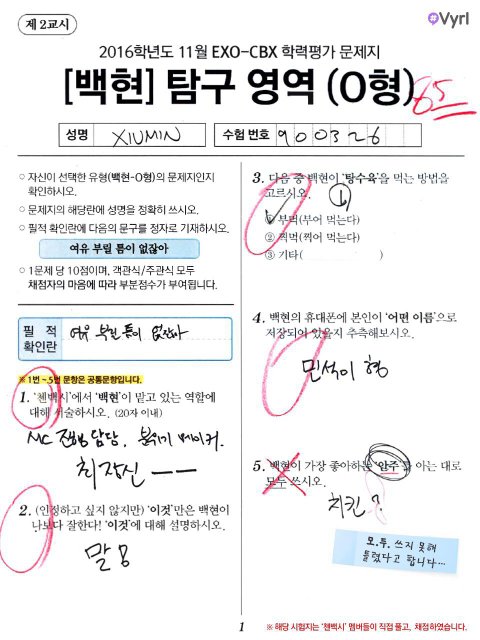 제 2교시
Vyrl
2016학년도 11월 EXO-CBX 학력평가 문제지
[백현] 탐구 영역 (O형)
65
성명 XIUMIN 수험 번호 900326
○ 자신이 선택한 유형(백현-O형)의 문제지인지
확인하시오.
○ 문제지의 해당란에 성명을 정확히 쓰시오.
○ 필적 확인란에 다음의 문구를 정자로 기재하시오.
여유 부릴 틈이 없잖아
○ 1문제 당 10점이며, 객관식/주관식 모두
채점자의 마음에 따라 부분점수가 부여됩니다.
필 적
확인란
여유 부릴 틈이 없잖아
※ 1번 ~5번 문항은 공통문항입니다.
1. '첸백시'에서 '백현'이 맡고 있는 역할에
대해 서술하시오. (20자 이내)
MC 진행 담당, 분위기 메이커.
최장신 ㅡㅡ
2. (인정하고 싶지 않지만) '이것'만은 백현이
나보다 잘한다! '이것'에 대해 설명하시오.
말빨
3. 다음 중 백현이 '탕수육'을 먹는 방법을
고르시오.
① 부먹(부어 먹는다)
② 찍먹(찍어 먹는다)
③ 기타( )
4. 백현의 휴대폰에 본인이 '어떤 이름'으로
저장되어 있을지 추측해보시오.
민석이 형
5. 백현이 가장 좋아하는 '안주'를 아는 대로
모두 쓰시오.
치킨?
모.두. 쓰지 못해
틀렸다고 합니다…
1
※ 해당 시험지는 '첸백시' 멤버들이 직접 풀고, 채점하였습니다.